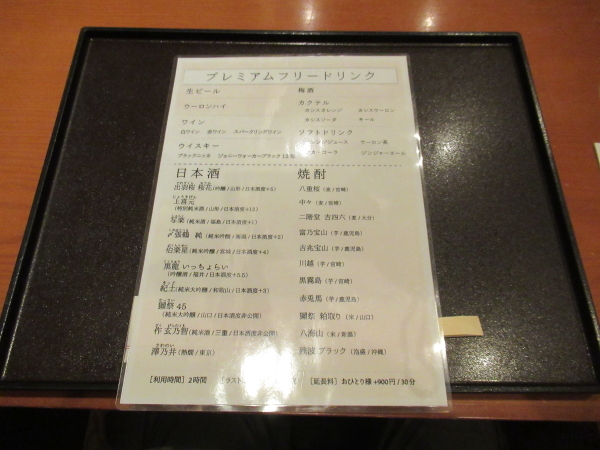 プレミアムフリードリンク
生ビール
ウーロンハイ
ワイン
白ワイン 赤ワイン スパークリングワイン
ウイスキー
ブラックニッカ ジョニーウォーカーブラック12年
梅酒
カクテル
カシスオレンジ カシスウーロン
カシスソーダ キール
ソフトドリンク
ジュース ウーロン茶
コーラ ジンジャーエール
日本酒
出羽桜 桜花(吟醸/山形/日本酒度+5)
上喜元
(特別純米酒/山形/日本酒度+12)
写楽(純米酒/福島/日本酒度+1)
〆張鶴 純(純米吟醸/新潟/日本酒度+2)
伯楽星(純米吟醸/宮城/日本酒度+4)
黒龍 いっちょらい
(吟醸酒/福井/日本酒度+5.5)
紀土(純米大吟醸/和歌山/日本酒度+3)
獺祭 45
(純米大吟醸/山口/日本酒度非公開)
作 玄乃智(純米酒/三重/日本酒度非公開)
澤乃井(熱燗/東京)
焼酎
八重桜(麦/宮崎)
中々(麦/宮崎)
二階堂 吉四六(麦/大分)
富乃宝山(芋/鹿児島)
吉兆宝山(芋/鹿児島)
川越(芋/宮崎)
黒霧島(芋/宮崎)
赤兎馬(芋/鹿児島)
獺祭 粕取り(米/山口)
八海山(米/新潟)
残波 ブラック(泡盛/沖縄)
[利用時間]2時間 [ラスト [延長料]おひとり様+900円/30分